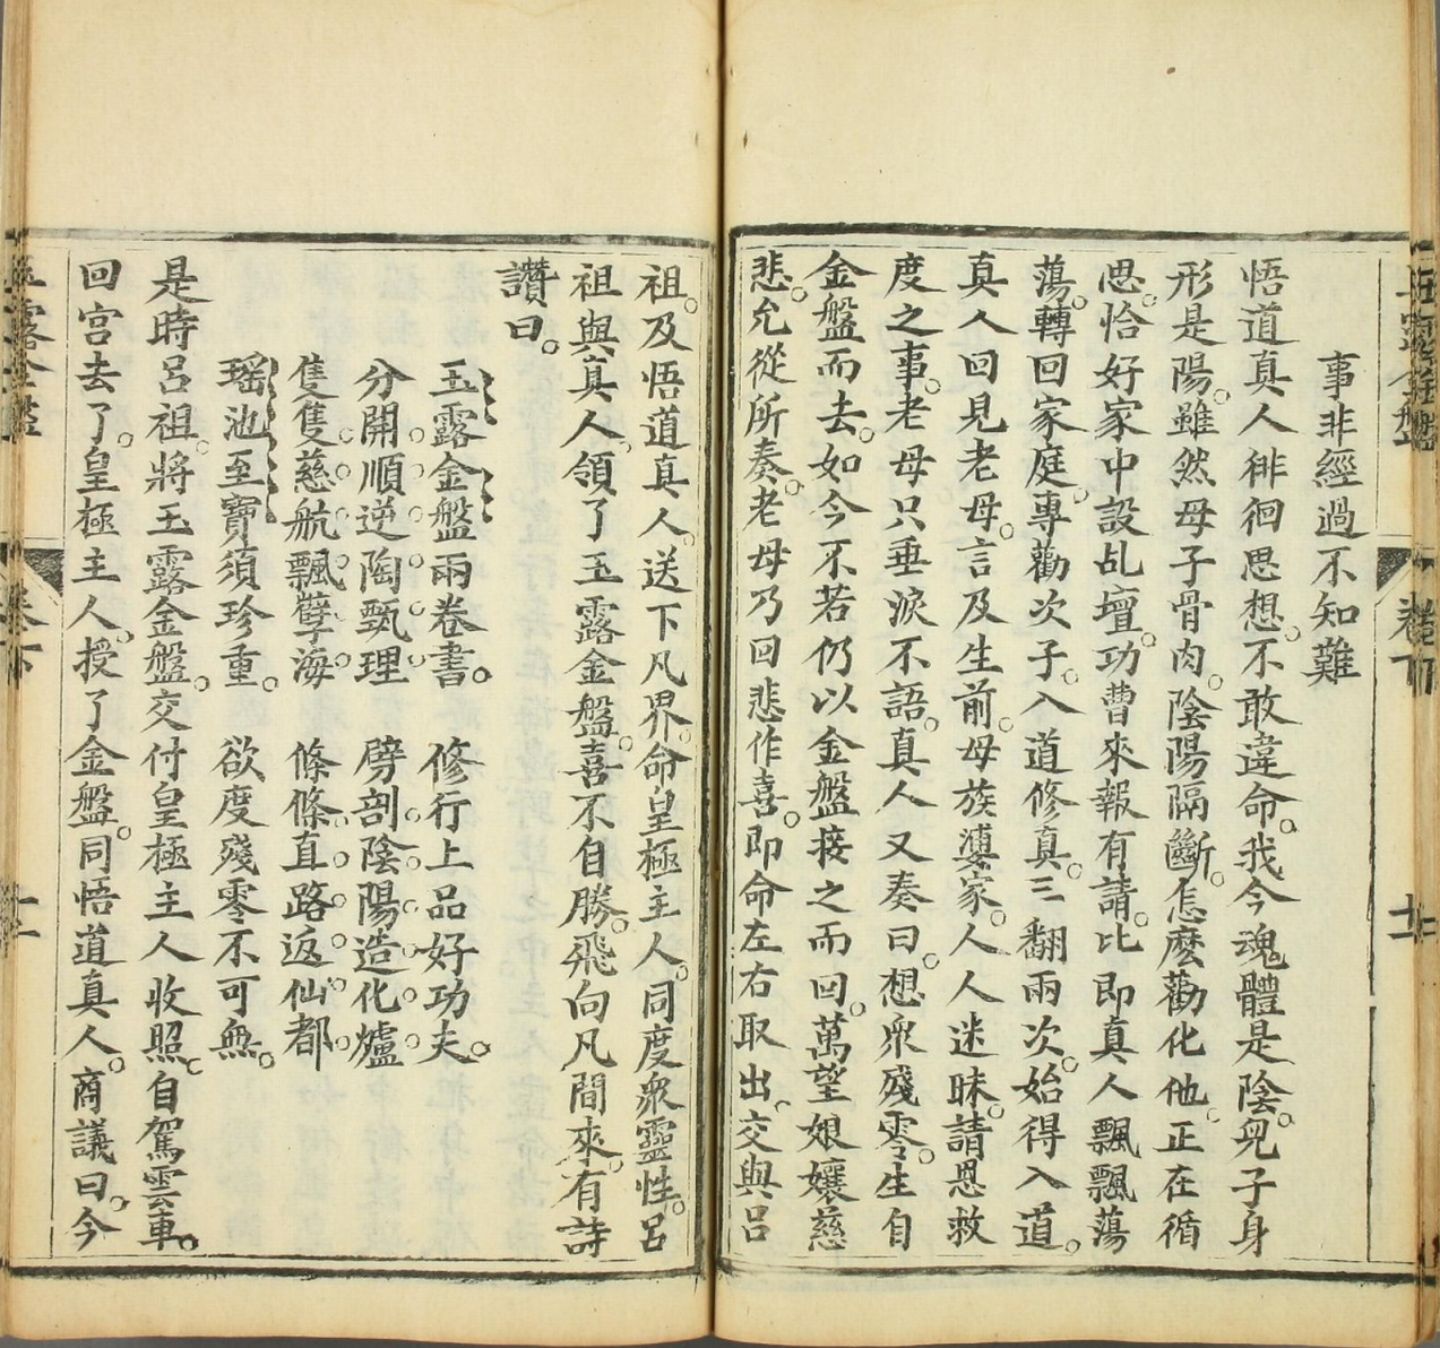 事非經過不知難
悟道真人徘徊思想。不敢違命。我今魂體是陰。兒子身
形是陽。雖然母子骨肉。陰陽隔斷。怎麽勸化他。正在循
思。恰好家中設乩壇。功曹來報有請。比即真人飄飄蕩
蕩。轉回家庭。專勸次子。入道修真。三翻兩次。始得入道。
真人回見老母。言及生前。母族漊家。人人迷昧。請恩救
度之事。老母只垂淚不語。真人又奏曰。想衆殘零。生自
金盤而去。如今不若仍以金盤接之而回。萬望娘孃慈
悲。允從所奏。老母乃回悲作喜。即命左右取出。交與呂
卷下
祖。及悟道真人。送下凡界。命皇極主人。同度衆靈性。呂
祖與真人。領了玉露金盤。喜不自勝。飛向凡間來。有詩
讚曰。
玉露金盤兩卷書。 修行上品好功夫。
分開順逆陶甄理 劈剖陰陽造化爐。
隻隻慈航飄孽海。 條條直路返仙都。
瑶池至寶須珍重。 欲度殘零不可無。
是時呂祖。將玉露金盤。交付皇極主人收照。自駕雲車。
回宮去了。皇極主人。授了金盤。同悟道真人。商議曰。今
玉露金盤